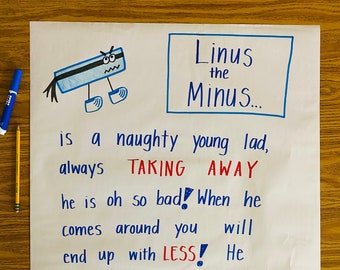 Linus
the
Minus...
is a naughty young lad,
always TAKING AWAY
he is oh so bad! When he
comes around you will
end up with LESS! He